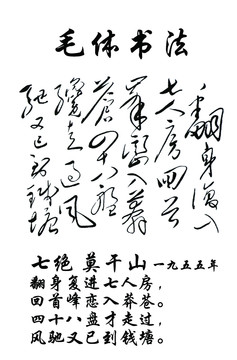 毛体书法
翻身復入
七人房回首
峯巒入莽
蒼四十八盤
纔走過风
驰又已到钱塘
七绝 莫干山 一九五五年
翻身复进七人房，
回首峰恋入莽苍。
四十八盘才走过，
风驰又已到钱塘。